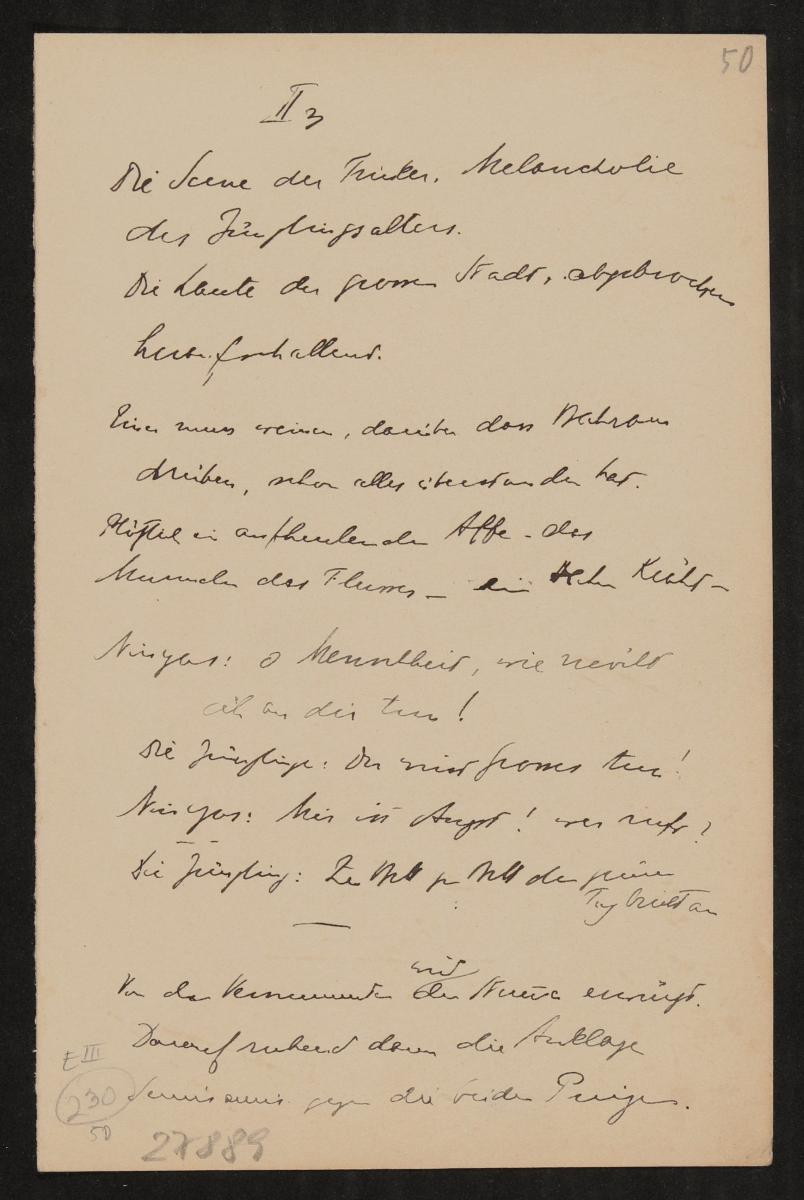 50
II 3
Die Scene der Trinker. Melancholie
des Jünglingsalters.
Die Laute der grossen Stadt, abgebrochen
heraufschallend.
Einer muss weinen, darüber dass Bahram
drüben, schon alles überstanden hat.
ein aufheulender Affe – das
Murmeln des Flusses – ein Hahn kräht –
Ninyas: o Mennschheit, wie
ich an dir tun!
Die Jünglinge: Du wirst Grosses tun!
Ninyas: Mir ist Angst! wer ruft?
Die Jünglinge: Zu Bett zu Bett der
Tag bricht an
—
Von den Vermummten wird der erwürgt.
Darauf ruhend dann die Anklage
gegen die beiden Prinzen.
E III
230
50
27889